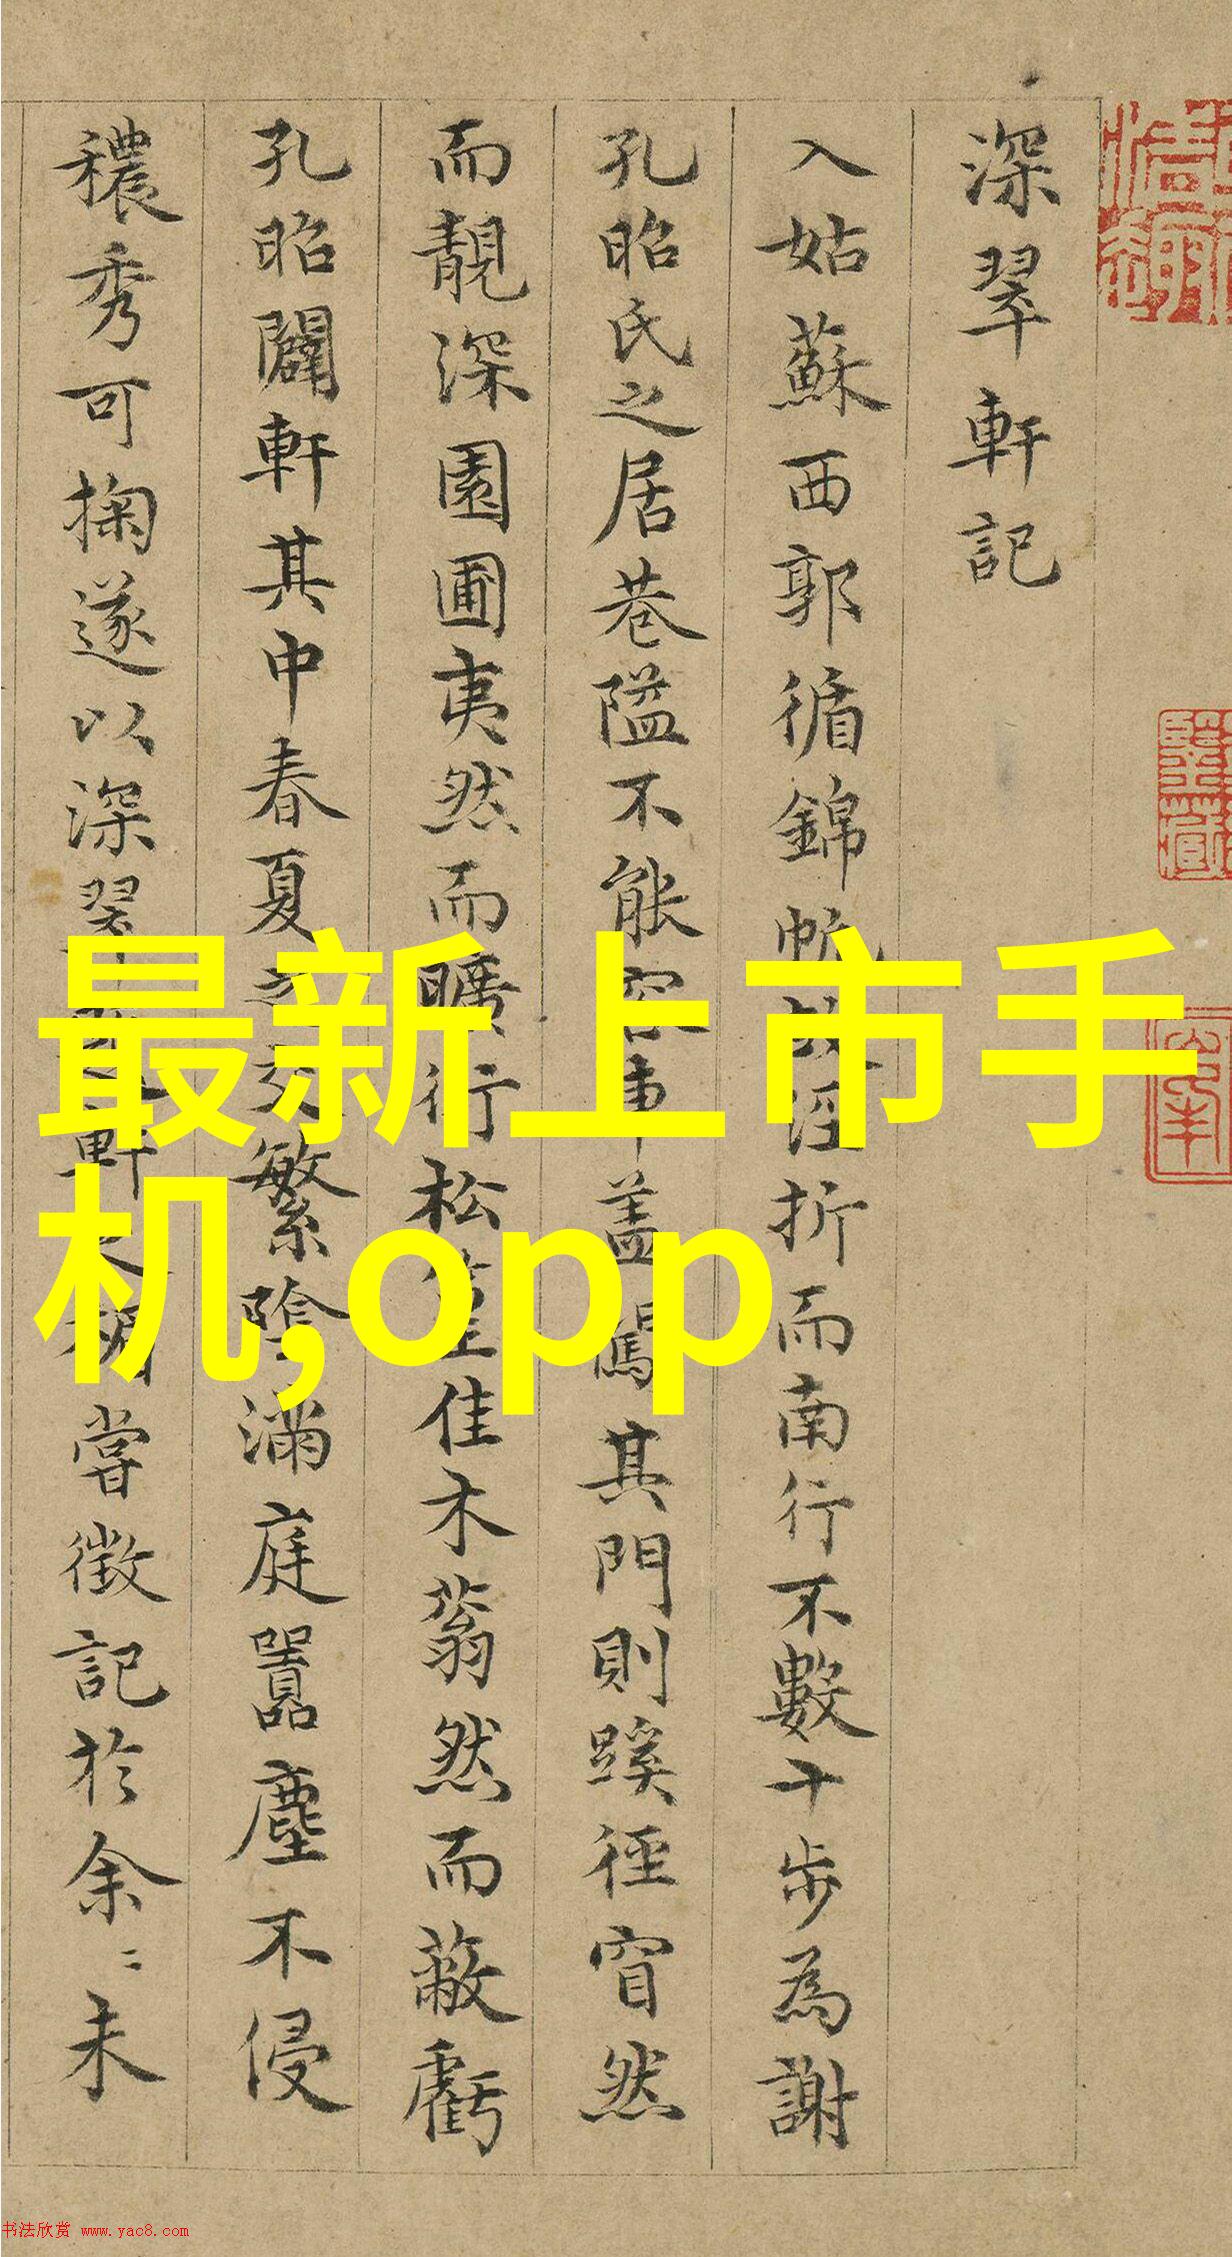 深翠軒記
入姑蘇西郭循錦帆故涇折而南行不數十步為謝
孔昭氏之居巷隘不能容車蓋闖其門則蹊徑窅然
而靚深園圃夷然而曠衍松筀佳木蓊然而蔽虧
孔昭闢軒其中春夏之交繁陰滿庭囂塵不侵
穠秀可掬遂以深翠
軒之
嘗徵記於余〻未
最新上市手
机,opp
书法欣赏 www.yac8.com